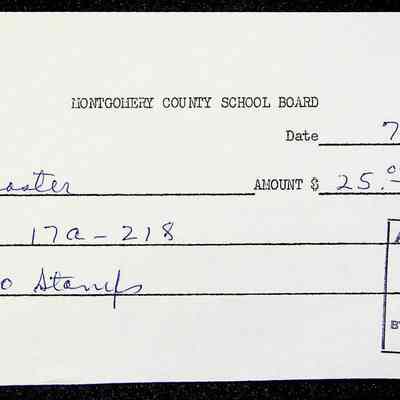 MONTGOMERY COUNTY SCHOOL BOARD
Date 7
AMOUNT $ 25.00
17a-218
Stamps